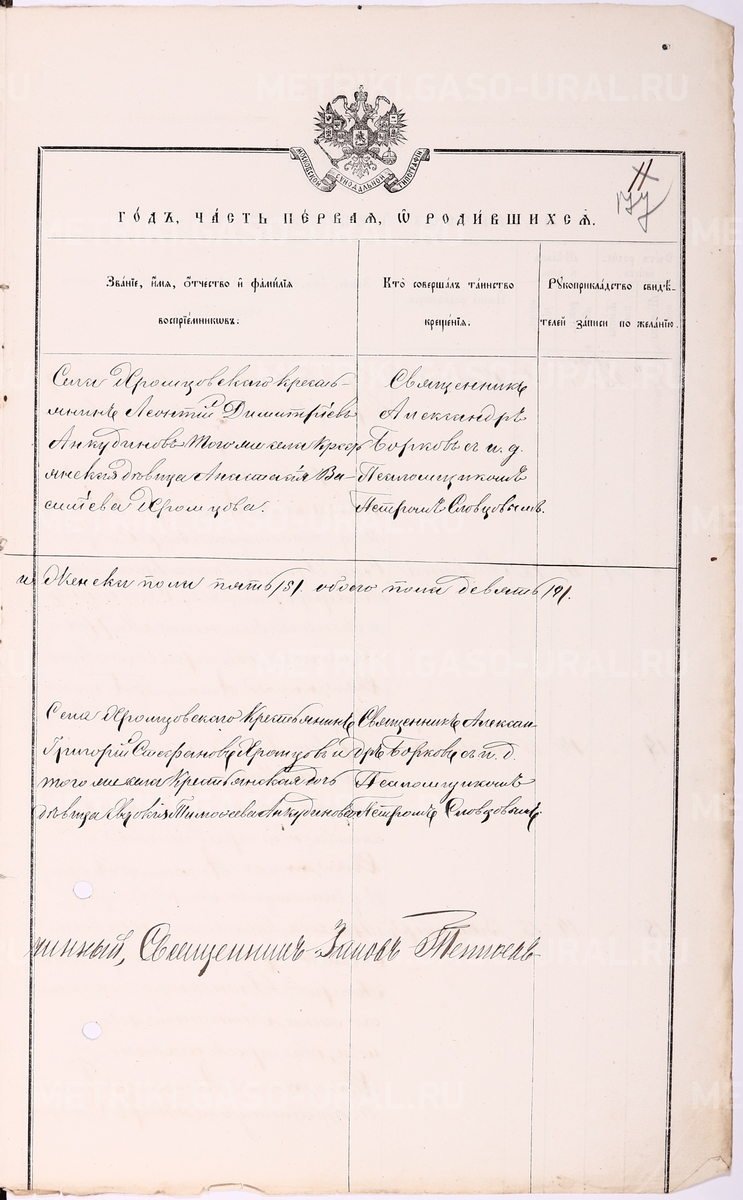 METRIKI.GASO-URAL.RU
МОСКОВСКОЙ СѴНОДАЛЬНОЙ ТИПОГРАФІИ
11
177
ГО́ДЪ, ЧА́СТЬ ПЕ́РВАЯ, Ѡ҆ РОДИ́ВШИХСЯ.
Зва́нїе, и҆́мѧ, ѻ҆́тчество и҆ фамѝлїѧ
воспрїе́мниковъ.
Кто̀ соверша́лъ та́инство
креще́нїѧ.
Рꙋкоприкла́дство свидѣ́-
телей за́писи по жела́нїю.
Села Хромцовскаго кресть-
янинъ Леонтій Димитріевъ
Анкудиновъ того же села крестъ
янская дѣвица Анастасія Ва-
силіева Хромцова.
Священникъ
Александръ
Борковъ съ и. д.
Псаломщикомъ
Петромъ Словцовымъ.
и Женска пола пять /5/ обоего пола девять /9/.
Села Хромцовскаго Крестьянинъ
Григорій Стефановъ Хромцовъ и
того же села Крестьянская дочь
дѣвица Евдокія Тимоѳеева Анкудинова
Священникъ Алексан
дръ Борковъ съ и. д.
Псаломщикомъ
Петромъ Словцовымъ.
чинный, Священникъ
METRIKI.GASO-URAL.RU